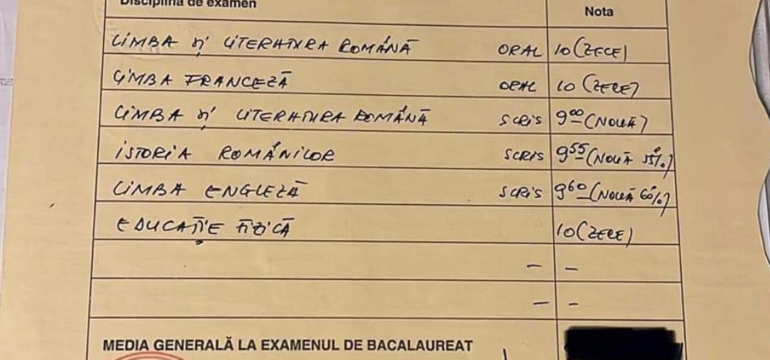 Disciplina de examen Nota
LIMBA ȘI LITERATURA ROMÂNĂ ORAL 10 (ZECE)
LIMBA FRANCEZĂ ORAL 10 (ZECE)
LIMBA ȘI LITERATURA ROMÂNĂ SCRIS 9 00 (NOUĂ)
ISTORIA ROMÂNILOR SCRIS 9 55 (NOUĂ 55%)
LIMBA ENGLEZĂ SCRIS 9 60 (NOUĂ 60%)
EDUCAȚIE FIZICĂ 10 (ZECE)
– –
– –
MEDIA GENERALĂ LA EXAMENUL DE BACALAUREAT